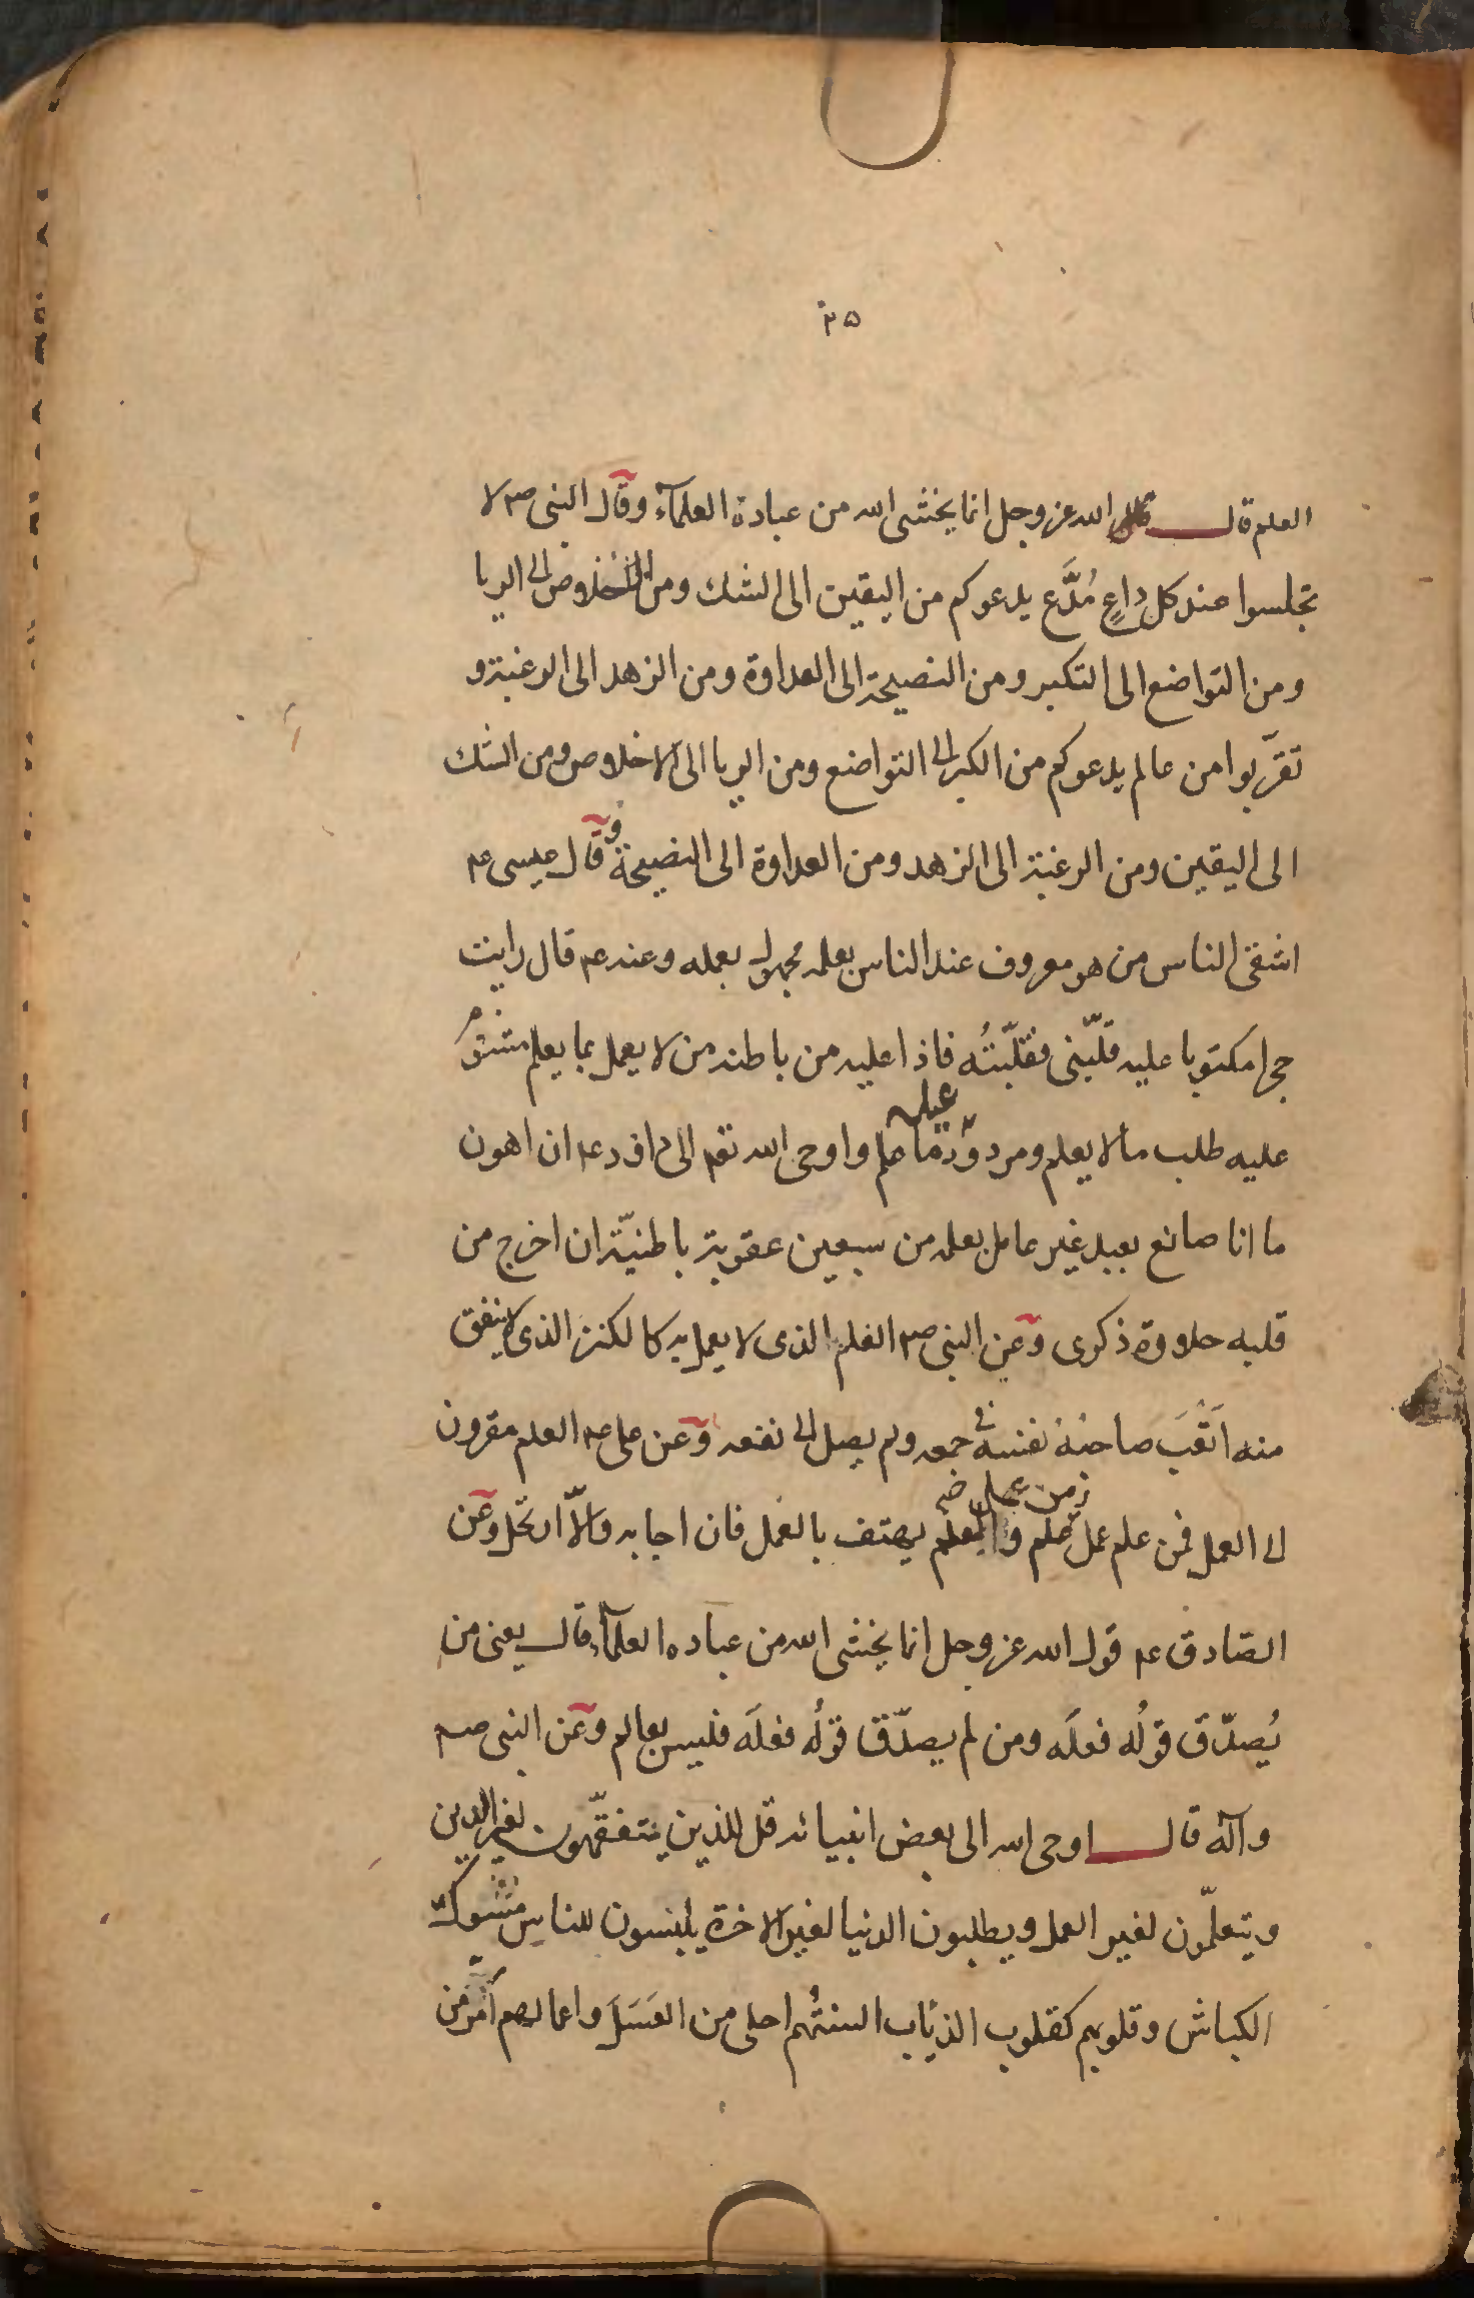 ۲۵
العلم قال الله عز وجل انما يخشى الله من عباده العلمآء وقال النبى صم لا
تجلسوا عند كل داعٍ مُدَّع يدعوكم من اليقين الى الشك ومن الاخلاص الى الريا
ومن التواضع الى التكبر ومن النصيحة الى العداوة ومن الزهد الى الرغبة و
تقرّبوا من عالم يدعوكم من الكبر الى التواضع ومن الريا الى الاخلاص ومن الشك
الى اليقين ومن الرغبة الى الزهد ومن العداوة الى النصيحة وقال عيسى عم
اشقى الناس من هو معروف عند الناس بعلمه مجهول بعمله وعنه عم قال رايت
حجرا مكتوبا عليه قلّبنى فقلّبتُه فاذا عليه من باطنه من لا يعمل بما يعلم مشئوم
عليه طلب ما لا يعلم ومردود عليه ما علم واوحى الله تعم الى داود عم ان اهون
ما انا صانع بعبد غير عامل بعلمه من سبعين عقوبة باطنيّة ان اخرج من
قلبه حلاوة ذكرى وعن النبى صم العلم الذى لا يعمل به كالكنز الذى لا ينفق
منه اَتْعَبَ صاحبُهُ نفسه فى جمعه ولم يصل الى نفعه وعن على عم العلم مقرون
الى العمل فمن علم عمل ومن عمل علم والعلم يهتف بالعمل فان اجابه والّا ارتحل وعن
الصّادق عم قول الله عز وجل انما يخشى الله من عباده العلمآء قال يعنى من
يُصدّق قولُه فعلَه ومن لم يصدّق قولُه فعلَه فليس بعالم وعن النبى صم
وآله قال اوحى الله الى بعض انبيائه قل للذين يتفقّهون لغير الدين
ويتعلّمون لغير العمل ويطلبون الدنيا لغير الاخرة يلبسون للناس مشوك
الكباش وقلوبهم كقلوب الذئاب السنتُهم احلى من العَسَلَ واعمالهم اَمرّ من